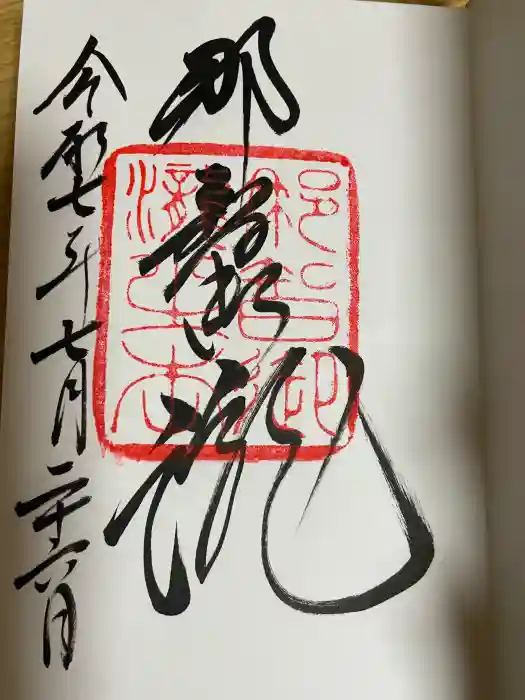 那智御瀧
令和七年七月二十六日